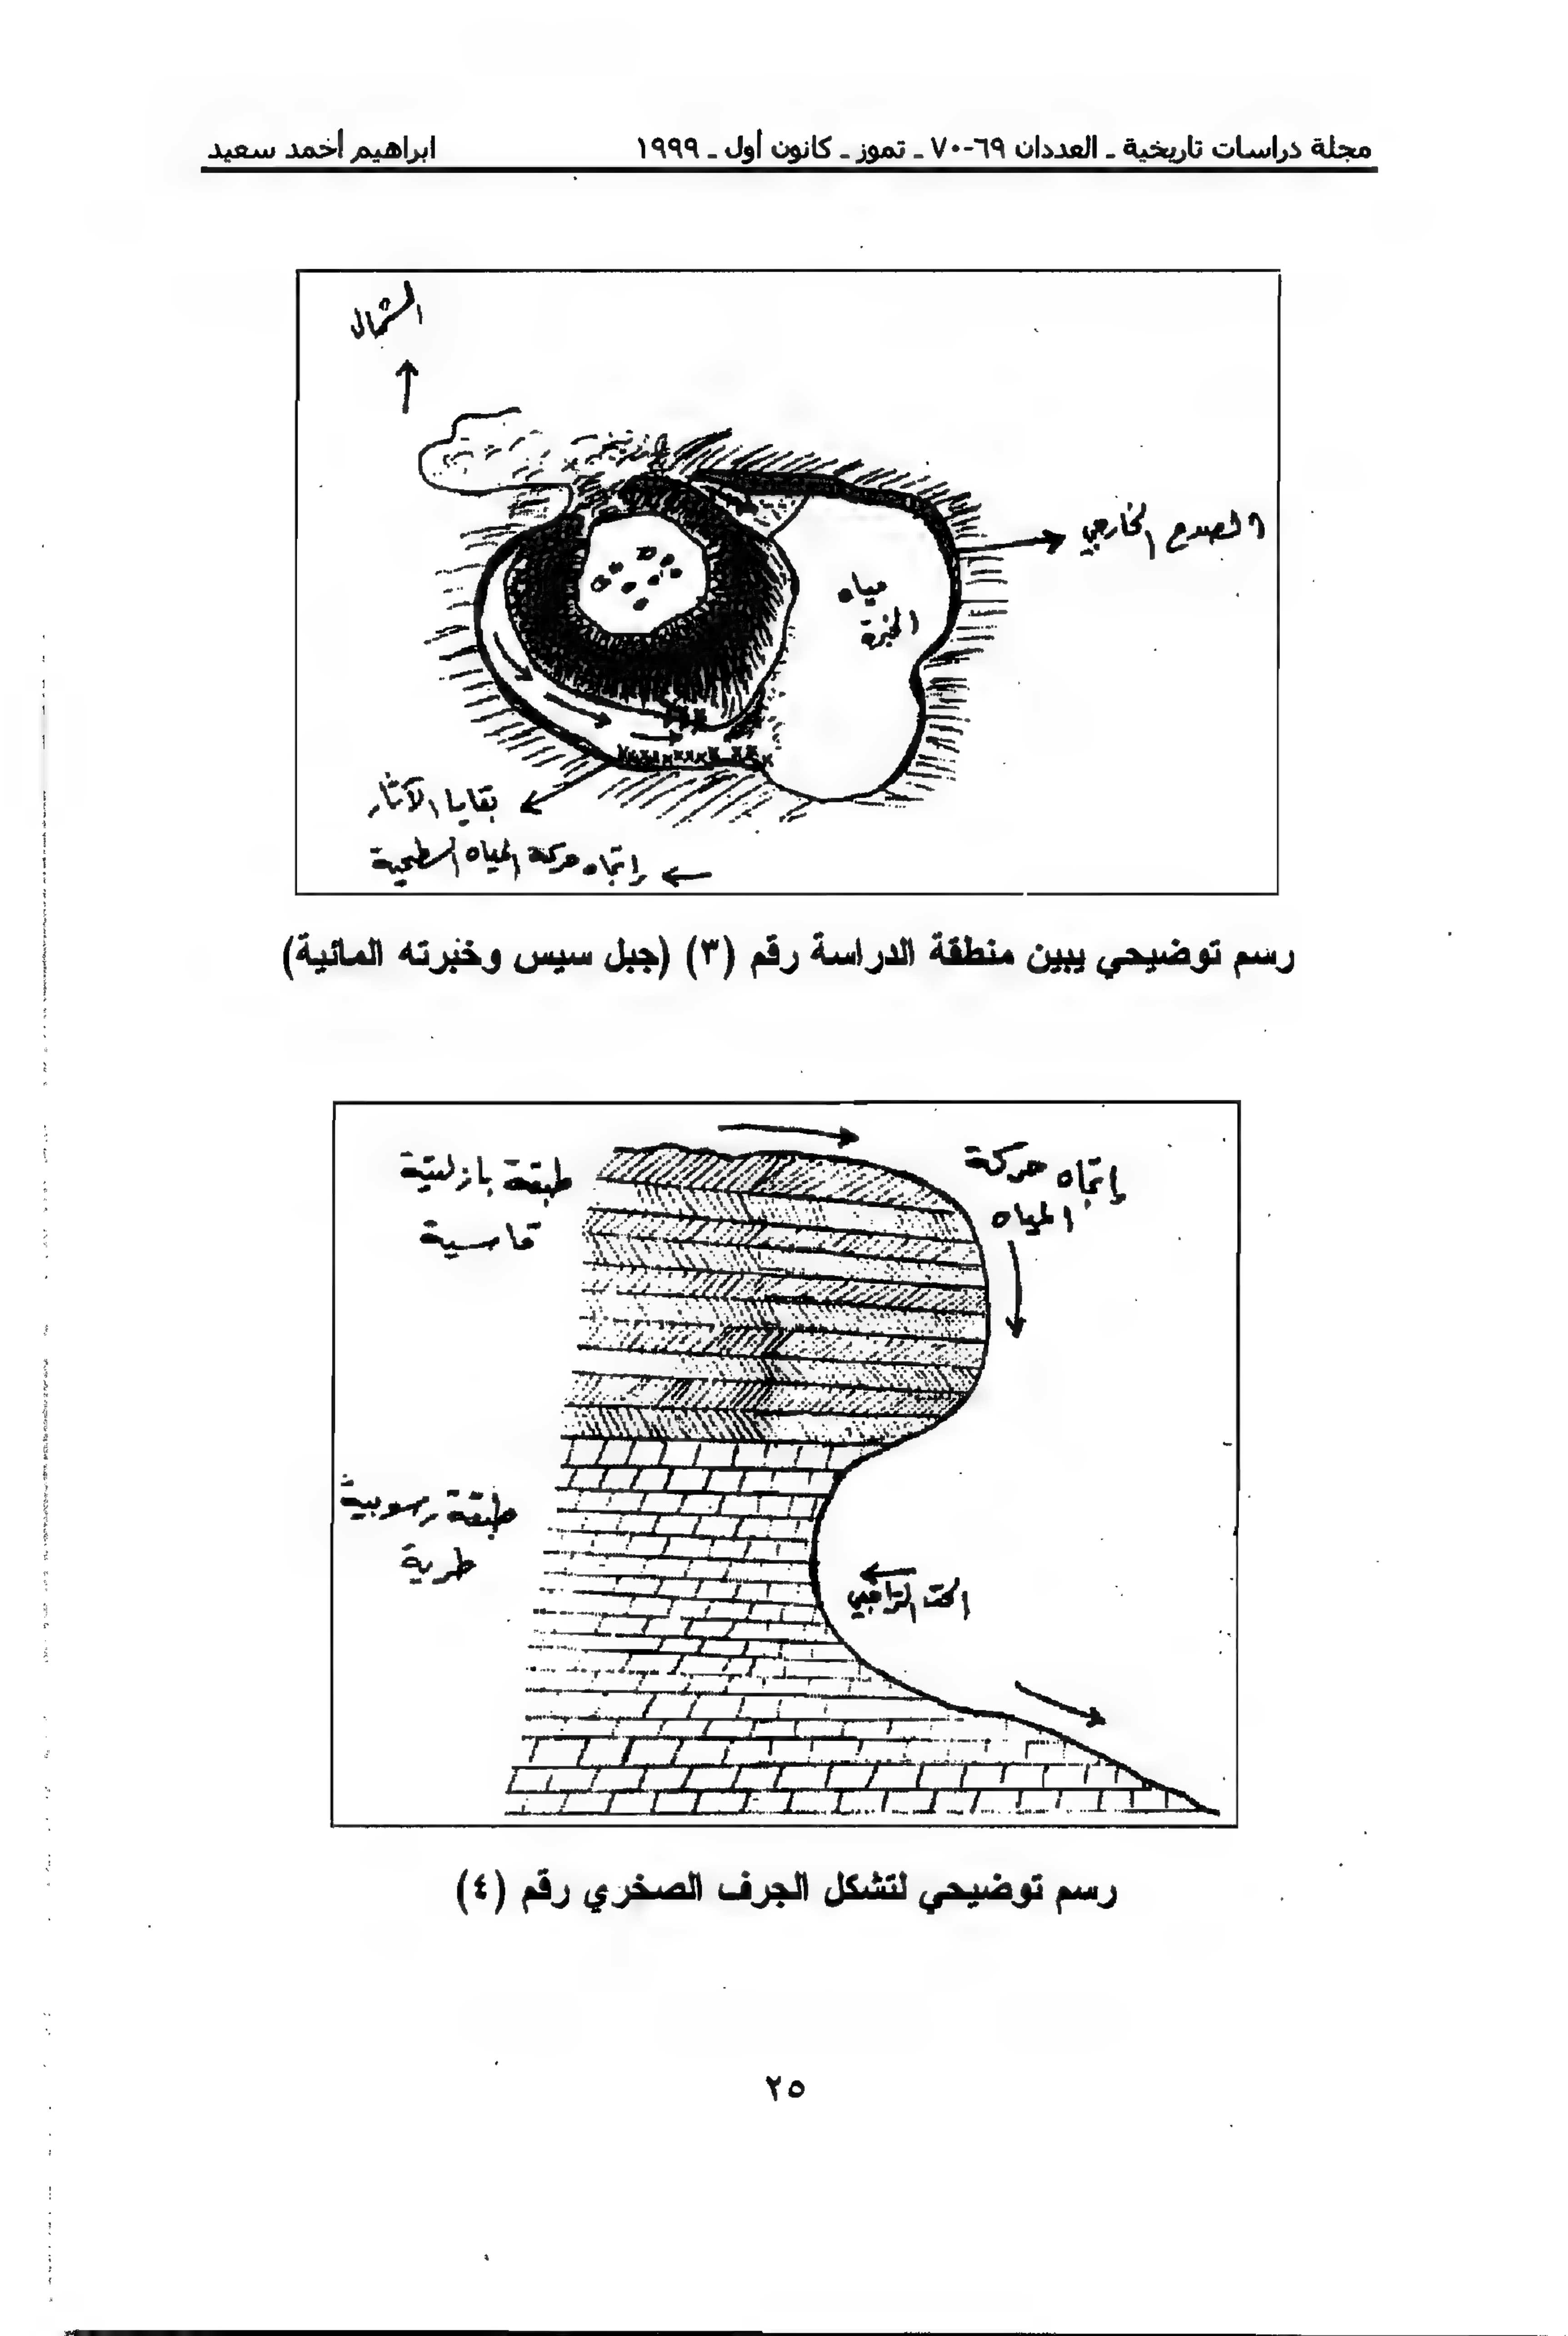 مجلة دراسات تاريخية ـ العددان ٦٩-٧٠ ـ تموز ـ كانون أول ـ ١٩٩٩ ابراهيم أحمد سعيد
الشمال
الصدع الخارجي
مياه
الخبرة
بقايا الآثار
إتجاه حركة المياه السطحية
رسم توضيحي يبين منطقة الدراسة رقم (٣) (جبل سيس وخبرته المائية)
إتجاه حركة
المياه
طبقة بازلتية
قاسية
طبقة رسوبية
طرية
الحت التراجعي
رسم توضيحي لتشكل الجرف الصخري رقم (٤)
٢٥